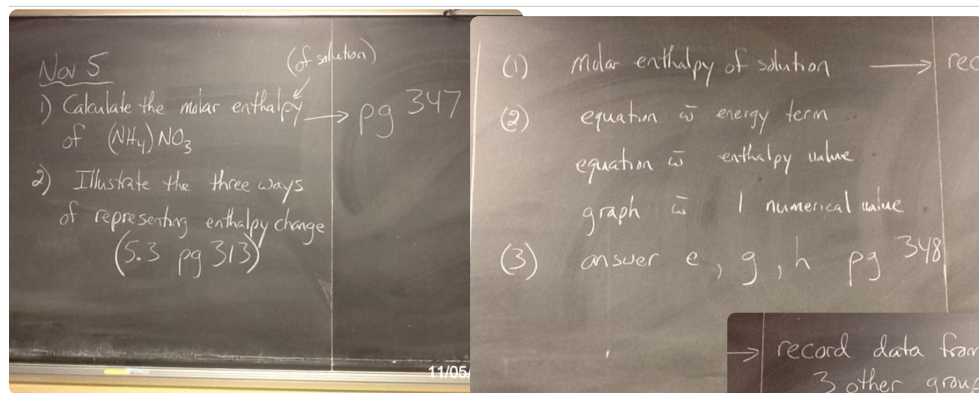 Nov 5
(of solution)
1) Calculate the molar enthalpy → pg 347
of (NH₄)NO₃
2) Illustrate the three ways
of representing enthalpy change
(5.3 pg 313)
11/05/
(1) molar enthalpy of solution → rec
(2) equation w̄ energy term
equation w̄ enthalpy value
graph w̄ 1 numerical value
(3) answer e, g, h pg 348
→ record data from
3 other group